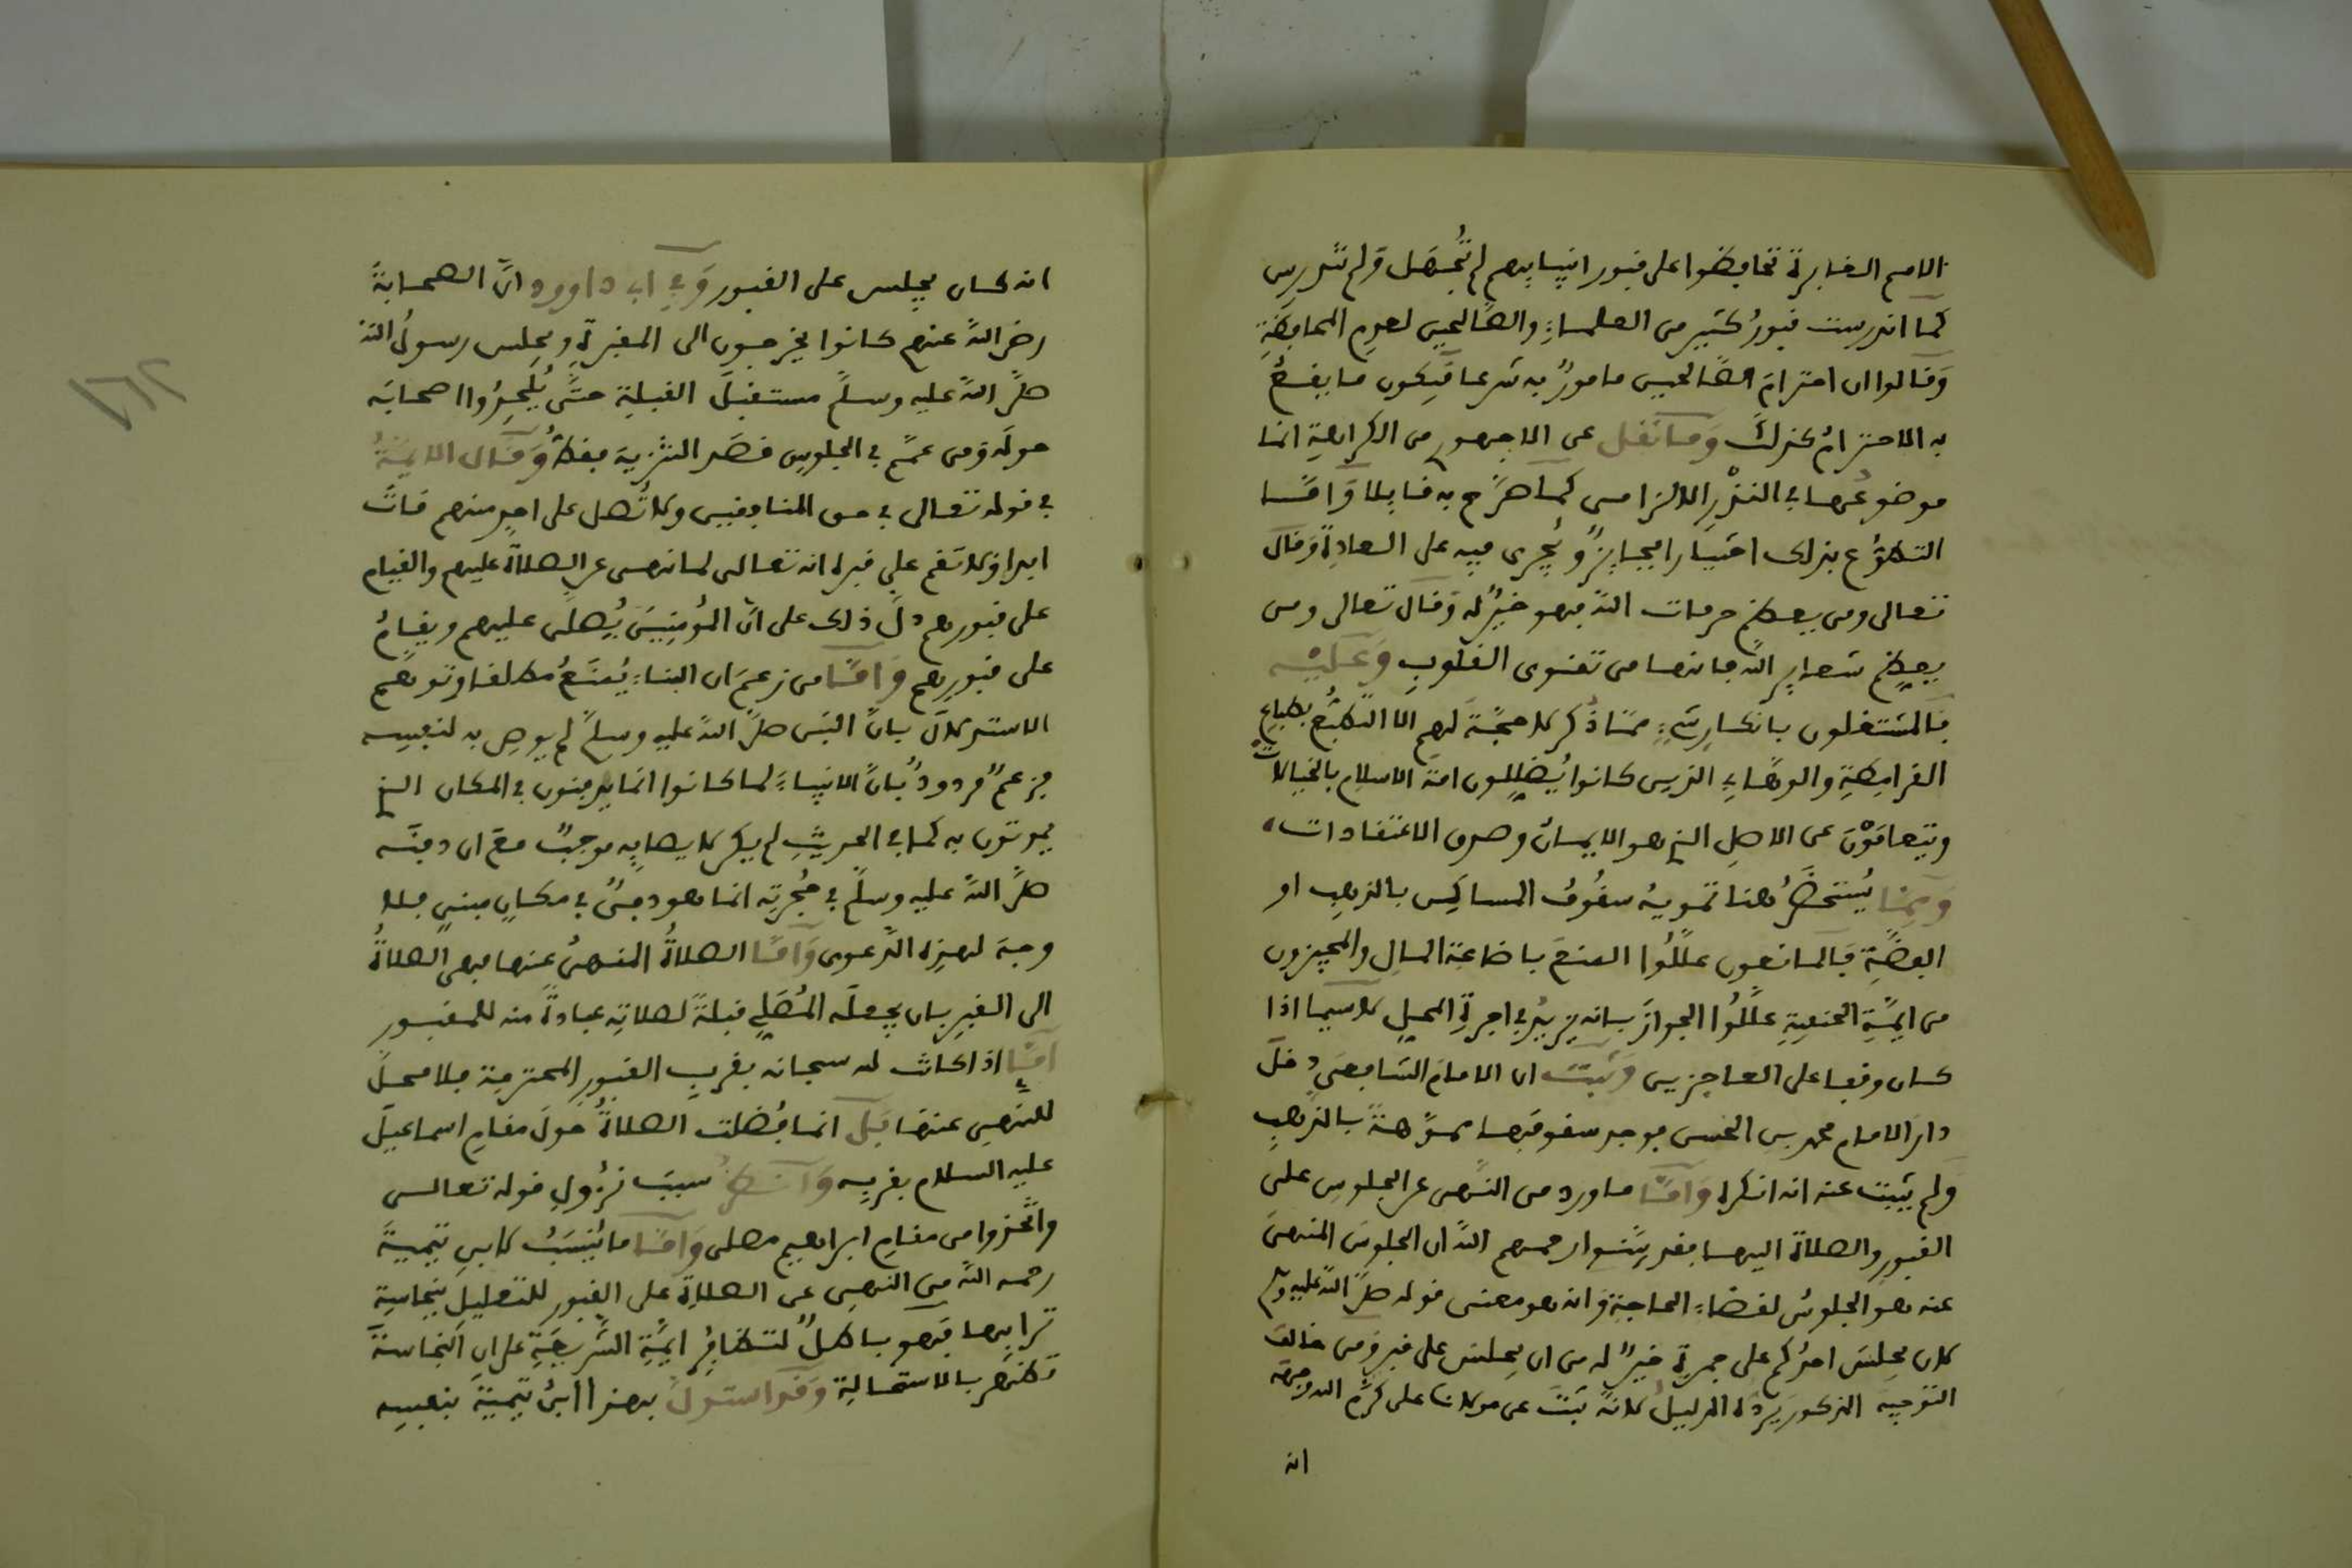 الامم الغابرة تحافظوا على قبور انبيايهم لم تُجهَل ولم تندرس
كما اندرست قبورُ كثير من العلماء والصّالحين لعدمِ المحافظةِ
وَقالوا ان احترامَ الصّالحين مامورٌ به شرعا فيكون ما يقعُ
به الاحترامُ كذلكَ وَما نُقل عن الجمهور من الكراهة انما
موضوعُها في النذْرِ الالزامى كما صرّح به قايلا وَامّا
التطوّع بذلك اختيارا فجايزٌ ويُجرى فيه على العادةِ وَقالَ
تعالى ومن يعظم حرمات اللهِ فهو خيرٌ له وَقال تعالى ومن
يعظم شعاير الله فانها من تقوى القلوبِ وَعليه
فالمشتغلون بانكارِ شيءٍ ممّا ذُكر لا حجّةَ لهم الا التطبُّع بطباعِ
القرامطةِ والوهّابيةِ الذين كانوا يُضلِلون امةَ الاسلام بالخيالات
ويتعامَوْنَ عن الاصلِ الذي هو الايمان وصدق الاعتقادات
وَممّا يُستحضَرُ هنا تمويهُ سقُوفُ المساكِن بالذهبِ او
الفضّةِ فالمانعون علّلُوا المنعَ باضاعة المال والمجيزون
من ايمّةِ الحنفيةِ علّلُوا الجوازَ بانه يزيدُ في اجرةِ المحلِ لا سيما اذا
كان وقفا على العاجزين وَثبتَ ان الامامَ الشافعيَ دخلَ
دارَ الامام محمد بن الحسن فوجد سقوفَها مموّهةً بالذهبِ
وَلم يثبت عنه انه انكره وَامّا ما ورد من النّهى عن الجلوسِ على
القبورِ والصلاة اليها فقد بيّنوا رحمهم اللهُ ان الجلوسَ المنهىَّ
عنه هو الجلوسُ لقضاء الحاجةِ وَانه هو معنى قوله صلّى اللهُ عليه وسلم
لان يجلسَ احدُكم على جمرةٍ خيرٌ له من ان يجلسَ على قبر وَمن خالفَ
التوجيهَ المذكورَ يردّه الدليلُ لانه ثبتَ عن مولانا على كرّم الله وجهه
انه
انه كان يجلس على القبور وَفي ابى داوود انّ الصحابةَ
رضى اللهُ عنهم كانوا يخرجون الى المقبرةِ ويجلس رسولُ الله
صلّى اللهُ عليه وسلّم مستقبلَ القبلةِ حتّى يُلحِدُوا اصحابَه
حولَه وَمن عمّم في الجلوسِ قصَد التنزيهَ فقط وَقال الايمّةُ
في قوله تعالى في حق المنافقين ولا تُصل على احدٍ منهم ماتَ
ابدا ولا تقم على قبره انه تعالى لما نهى عن الصلاةِ عليهم والقيام
على قبورهم دلّ ذلك على انّ المؤمِنِينَ يُصلّى عليهم ويقامُ
على قبورِهم وَامّا من زعمَ ان البناءَ يُمنَعُ مطلقا وَتوهّم
الاستدلالَ بانّ النبى صلّى اللهُ عليه وسلّم لم يوصِ به لنفسِه
فزعمٌ مردودٌ بانّ الانبياءَ لما كانوا انما يدفنون في المكان الذي
يموتون به كما في الحديثِ لم يكن لايصايِه موجبٌ معَ ان دفنَه
صلّى اللهُ عليه وسلّم في حُجرتِه انما هو دفنٌ في مكانٍ مبنيٍ فلا
وجهَ لهذه الدّعوى وَامّا الصلاةُ المنهىُّ عنها فهى الصلاةُ
الى القبرِ بان يجعلَه المُصلّي قبلةً لصلاتِه عبادةً منه للمقبور
امّا اذا كانت له سبحانه بقربِ القبورِ المحترمة فلا محلَّ
للنّهىِ عنها بَل انما فُضلت الصلاةُ حولَ مقامِ اسماعيلَ
عليه السلام بقربِه وَانظُر سببَ نزُولِ قوله تعالى
واتّخذوا من مقامِ ابراهيمَ مصلى وَامّا ما يُنسَبُ لابنِ تيميةَ
رحمه اللهُ من النهىِ عن الصلاةِ على القبورِ للتعليلِ بنجاسةِ
ترابِها فهو باطلٌ لتظافُرِ ايمّةِ الشّريعَةِ على انّ النّجاسةَ
تطهُر بالاستحالةِ وَقد استدلّ بهذا ابنُ تيميةَ بنفسِه